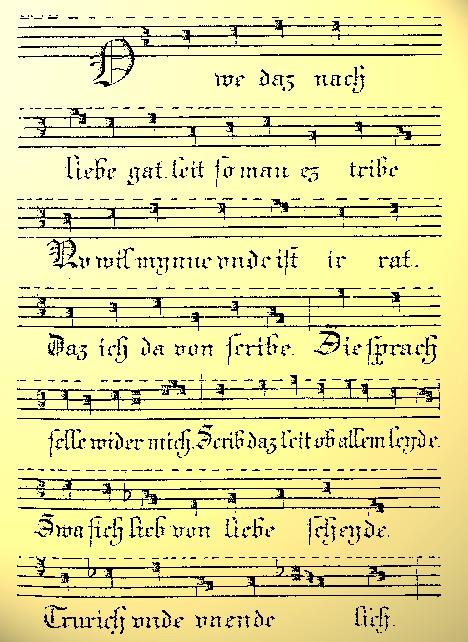 Owe daz nach
liebe gat. leit so man ez tribe
Nv wil mynne vnde ist ir rat.
Daz ich da von scribe. Die sprach
selle wider mich. Scrib daz leit ob allem leyde.
Swa sich lieb von liebe scheyde.
Trurich vnde vnende lich.